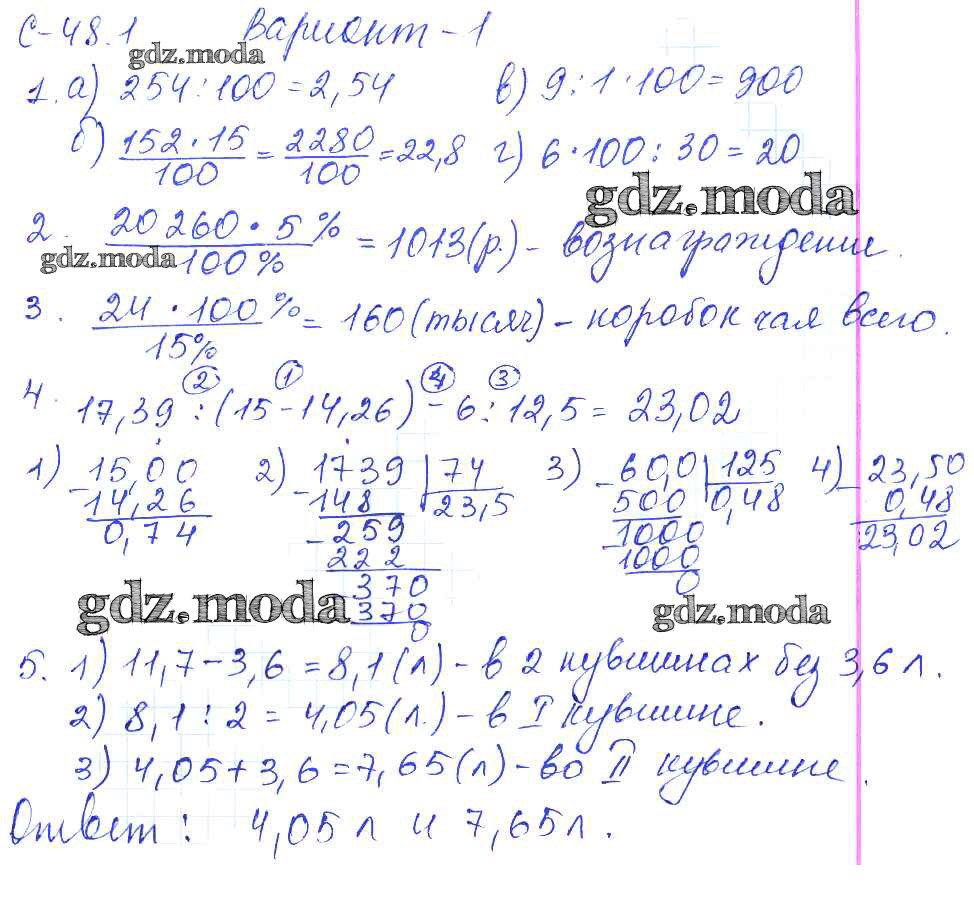 С-48.1 Вариант-1
gdz.moda
1. а) 254:100=2,54 в) 9:1·100=900
б) 152·15/100 = 2280/100 = 22,8 г) 6·100:30=20
gdz.moda
2. 20260·5%/100% = 1013(р.) - вознаграждение.
gdz.moda
3. 24·100%/15% = 160(тысяч) - коробок чая всего.
② ① ④ ③
4. 17,39:(15-14,26)-6:12,5= 23,02
1) 15,00 2) 1739 74 3) 60,0 125 4) 23,50
- 14,26 - 148 23,5 - 500 0,48 - 0,48
0,74 - 259 - 1000 23,02
222 1000
- 370 0
gdz.moda 370 gdz.moda
0
5. 1) 11,7-3,6=8,1(л) - в 2 кувшинах без 3,6 л.
2) 8,1:2=4,05(л.) - в I кувшине.
3) 4,05+3,6=7,65(л) - во II кувшине.
Ответ: 4,05 л и 7,65 л.